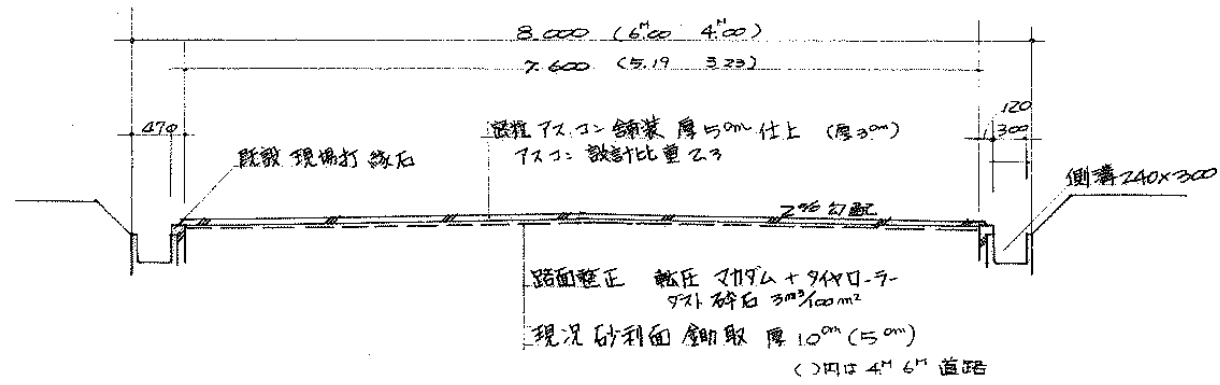 8.000 (6ᴹ00 4ᴹ00)
7.600 (5.19 3.23)
470
120
300
密粒アスコン舗装 厚5cm仕上 (厚3cm)
アスコン 設計比重 2.3
既設 現場打 縁石
側溝240×300
2% 勾配
路面整正 転圧 マカダム + タイヤローラー
ダスト 砕石 3m³/100m²
現況 砂利面 鋤取 厚10cm (5cm)
( )内は 4ᴹ 6ᴹ 道路